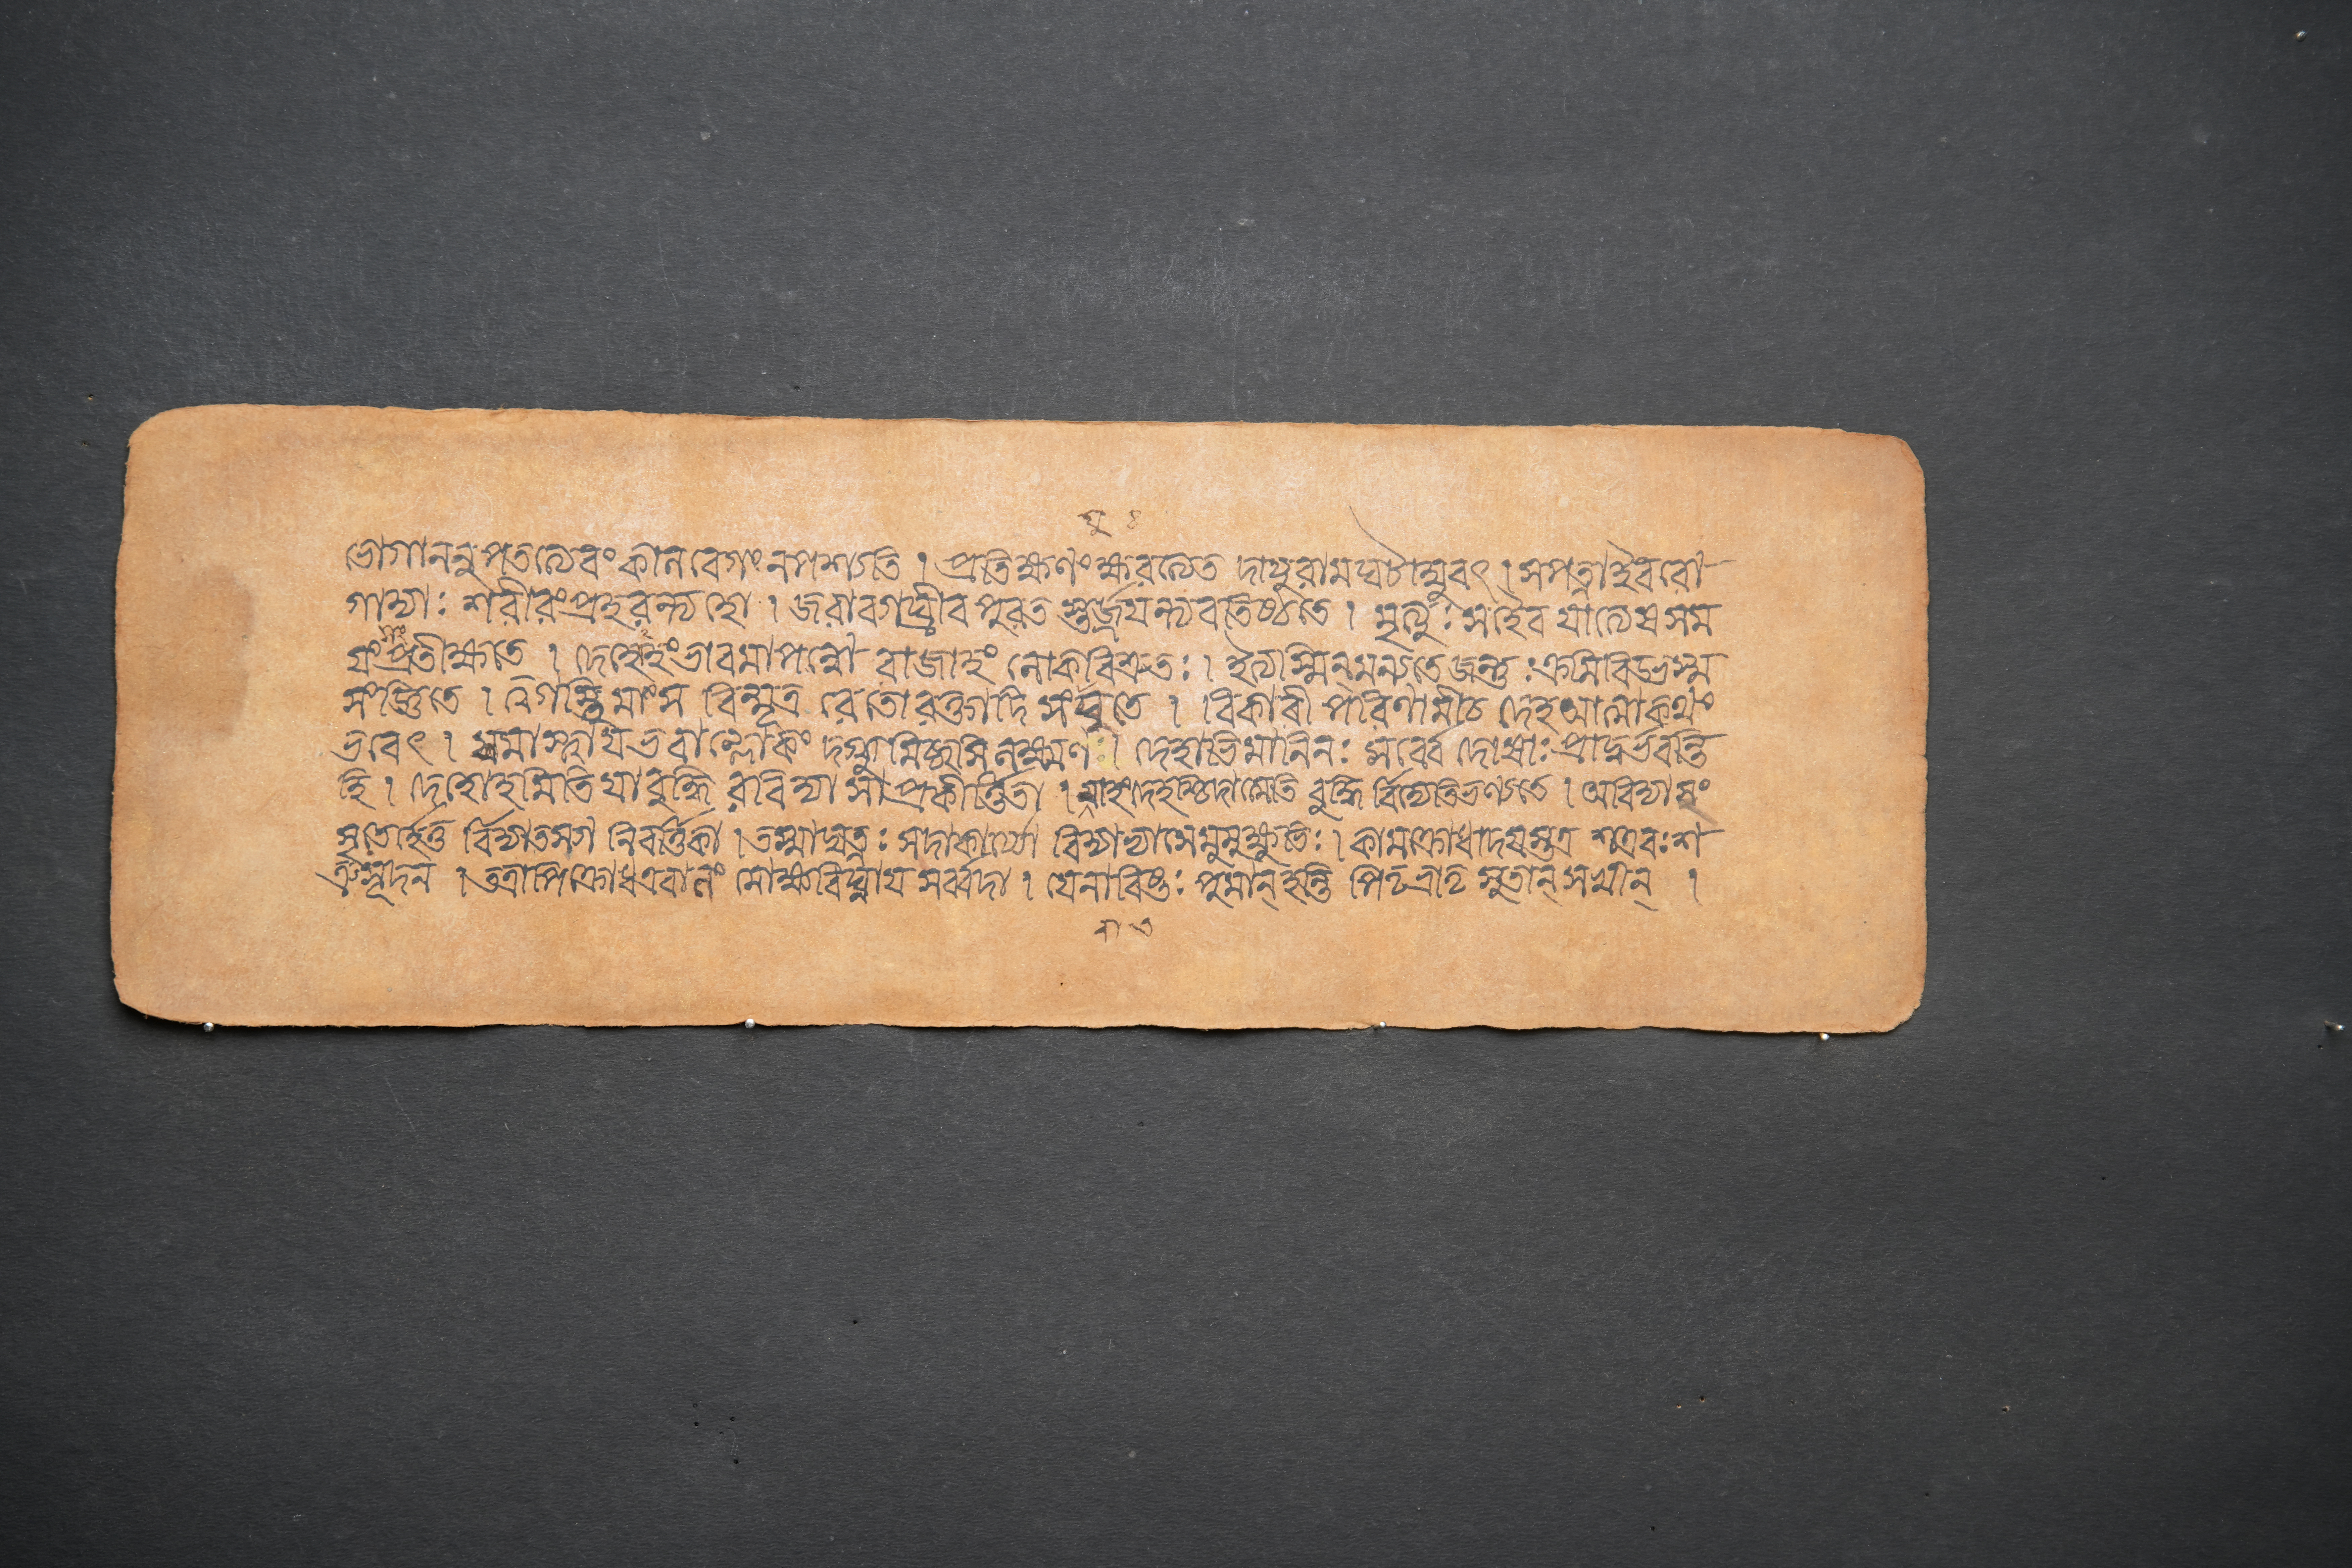 ভোগাননুপতত্যেবং কালবেগং নপশ্যতি । প্রতিক্ষণংক্ষরত্যেত দায়ুরামঘটাম্বুবৎ । সপত্নাইবরো
গাস্যাঃ শরীরংপ্রহরন্ত্যহো । জরাব্যাঘ্রীব পুরত স্তর্জয়ন্ত্যবতিষ্ঠতে । মৃত্যুঃ সহৈব যাত্যেষ সম
য়ং প্রতীক্ষতে । দেহেহংভাবমাপন্নো রাজাহং লোকবিশ্রুতঃ । ইত্যস্মিন্মন্যতে জন্তুঃ ক্রমিবিড্ভস্ম
সংজ্ঞিতে । ত্বগস্থিমাংস বিন্মূত্র রেতোরক্তাদি সংযুতে । বিকারী পরিণামীচ দেহআত্মাকথং
ভবেৎ । যমাস্থায়ভবাল্লোকং দগ্ধুমিচ্ছসিলক্ষ্মণ । দেহাভিমানিনঃ সর্ব্বে দোষাঃ প্রাদুর্ভবন্তি
হি । দেহোহমিতি যাবুদ্ধি রবিদ্যা সাপ্রকীর্ত্তিতা । নাহংদেহশ্চিদাত্মেতি বুদ্ধি র্বিদ্যেতিভণ্যতে । অবিদ্যাসং
সৃতের্হেতু র্বিদ্যাতস্যা নিবর্ত্তিকা । তস্মাদ্যত্নঃ সদাকার্য্যো বিদ্যাভ্যাসেমুমুক্ষুভিঃ । কামক্রোধাদয়স্তত্র শত্রবঃ শ
ত্রুসূদন । তত্রাপিক্রোধএবালং মোক্ষবিঘ্নায় সর্ব্বদা । যেনাবিষ্টঃ পুমান্ হন্তি পিতৃভ্রাতৃ সুহৃৎসখীন্ ।